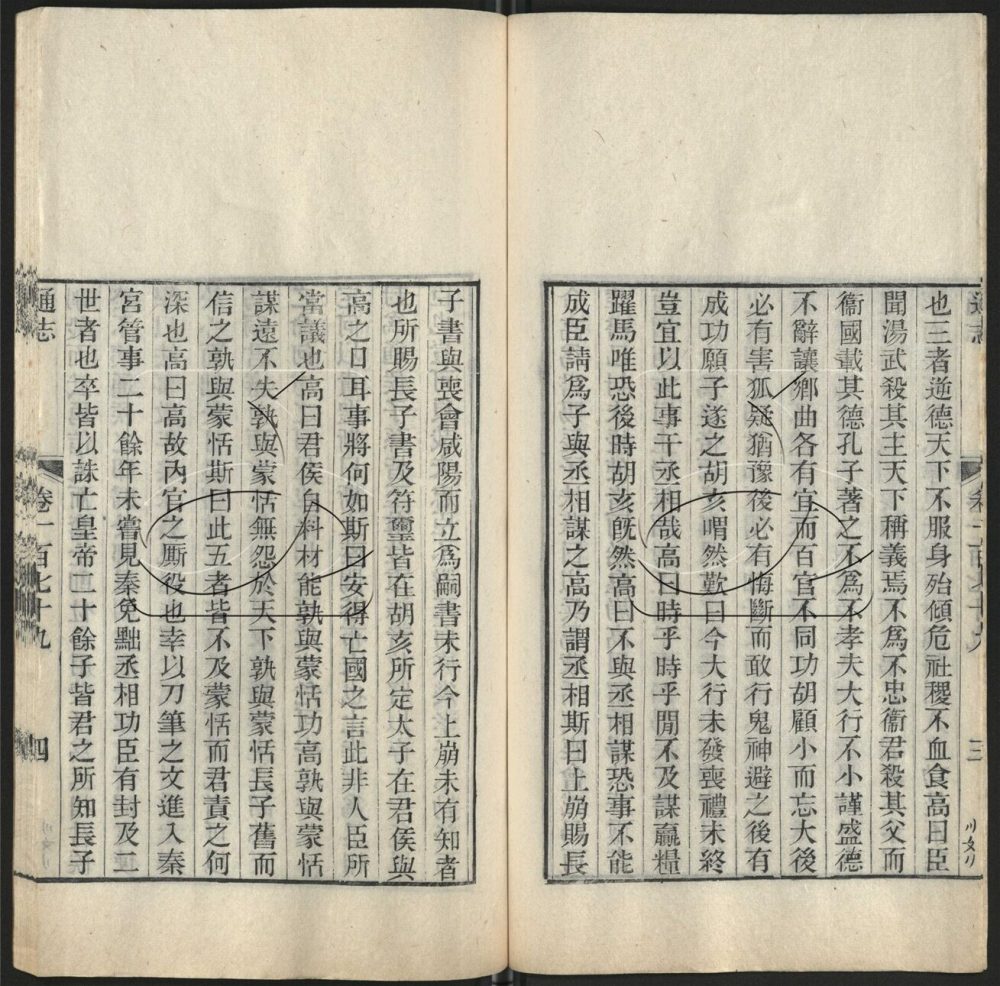 通志
三
也三者逆德天下不服身殆傾危社稷不血食高曰臣
聞湯武殺其主天下稱義焉不爲不忠衞君殺其父而
衞國載其德孔子著之不爲不孝夫大行不小謹盛德
不辭讓鄉曲各有宜而百官不同功胡顧小而忘大後
必有害狐疑猶豫後必有悔斷而敢行鬼神避之後有
成功願子遂之胡亥喟然歎曰今大行未發喪禮未終
豈宜以此事干丞相哉高曰時乎時乎閒不及謀贏糧
躍馬唯恐後時胡亥旣然高曰不與丞相謀恐事不能
成臣請爲子與丞相謀之高乃謂丞相斯曰上崩賜長
子書與喪會咸陽而立爲嗣書未行今上崩未有知者
也所賜長子書及符璽皆在胡亥所定太子在君侯與
高之口耳事將何如斯曰安得亡國之言此非人臣所
當議也高曰君侯自料材能孰與蒙恬功高孰與蒙恬
謀遠不失孰與蒙恬無怨於天下孰與蒙恬長子舊而
信之孰與蒙恬斯曰此五者皆不及蒙恬而君責之何
深也高曰高故內官之厮役也幸以刀筆之文進入秦
宮管事二十餘年未嘗見秦免黜丞相功臣有封及二
世者也卒皆以誅亡皇帝二十餘子皆君之所知長子
通志
卷一百七十九
四